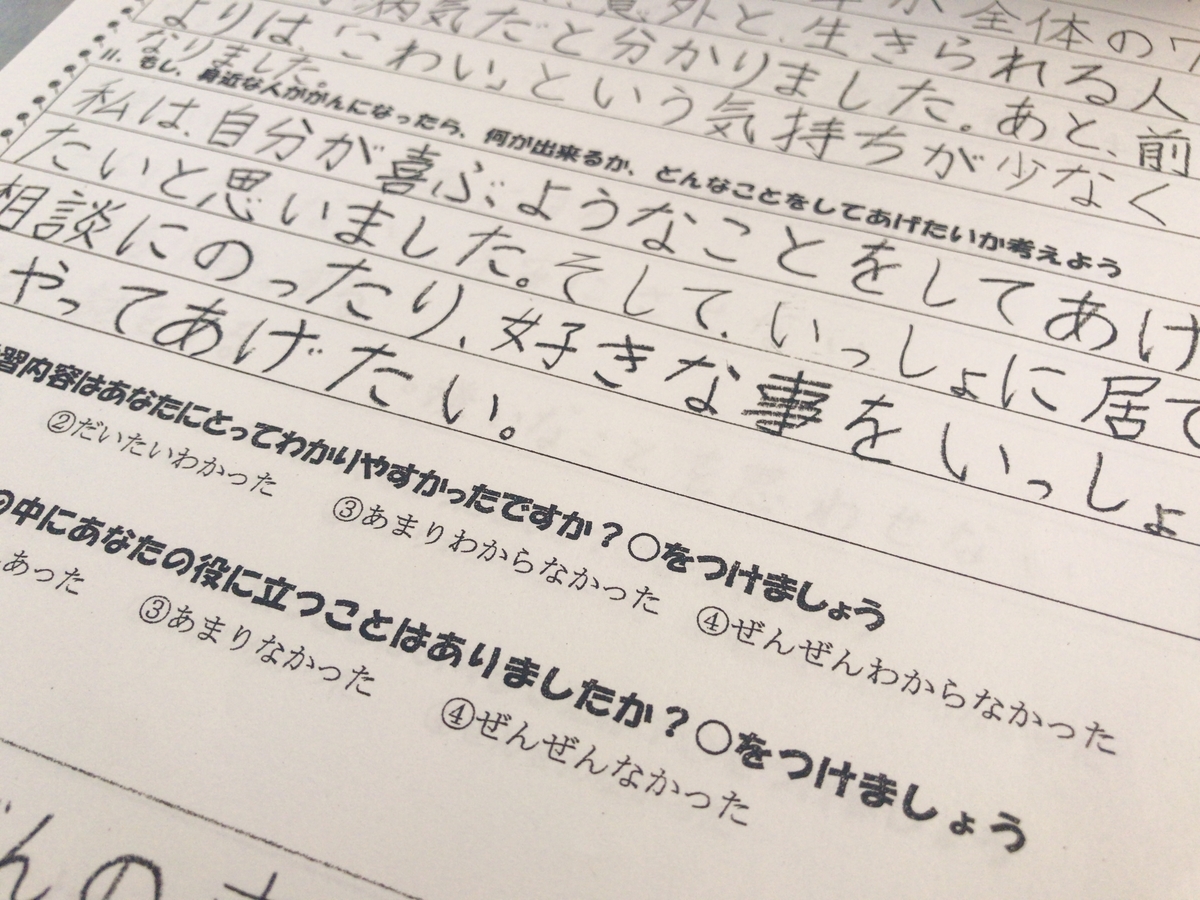 全体の
病気だと分かりました。あと、前
意外と、生きられる人
よりは、「こわい」という気持ちが少なく
なりました。
11. もし、身近な人ががんになったら、何が出来るか、どんなことをしてあげたいか考えよう
私は、自分が喜ぶようなことをしてあげ
たいと思いました。そして、いっしょに居て
相談にのったり、好きな事をいっしょ
やってあげたい。
習内容はあなたにとってわかりやすかったですか？○をつけましょう
②だいたいわかった ③あまりわからなかった ④ぜんぜんわからなかった
の中にあなたの役に立つことはありましたか？○をつけましょう
あった ③あまりなかった ④ぜんぜんなかった
んの